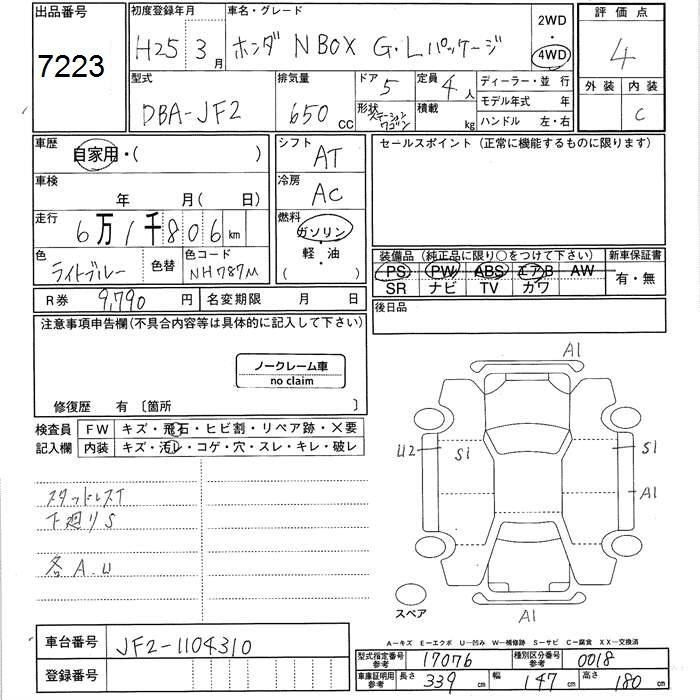 出品番号
7223
初度登録年月
H25 3月
車名・グレード
ホンダ N BOX G・Lパッケージ
2WD
4WD
評価点
4
外装 内装
C
型式
DBA-JF2
排気量
650 CC
ドア 5
形状 ステーションワゴン
定員 4人
積載 kg
ディーラー・並行
モデル年式 年
ハンドル 左・右
車歴
自家用・( )
車検
年 月(日)
走行
6万1千806km
色
ライトブルー
色替
色コード
NH787M
シフト
AT
冷房
AC
燃料
ガソリン
軽・油
( )
セールスポイント(正常に機能するものに限ります)
装備品(純正品に限り○をつけて下さい)
新車保証書
PS PW ABS エアB AW
SR ナビ TV カワ
有・無
R券 9,790円
名変期限 月 日
後日品
注意事項申告欄(不具合内容等は具体的に記入して下さい)
ノークレーム車
no claim
修復歴 有〔箇所 〕
検査員
記入欄
FW キズ・飛石・ヒビ割・リペア跡・×要
内装 キズ・汚レ・コゲ・穴・スレ・キレ・破レ
スタッドレスT
下廻りS
各A.U
A1
U2
S1
S1
A1
A1
スペア
車台番号
JF2-1104310
登録番号
A−キズ E−エクボ U−凹み W−補修跡 S−サビ C−腐食 XX−交換済
型式指定番号
参考
17076
種別区分番号
参考
0018
車庫証明用
参考
長さ 339cm
幅 147cm
高さ 180cm